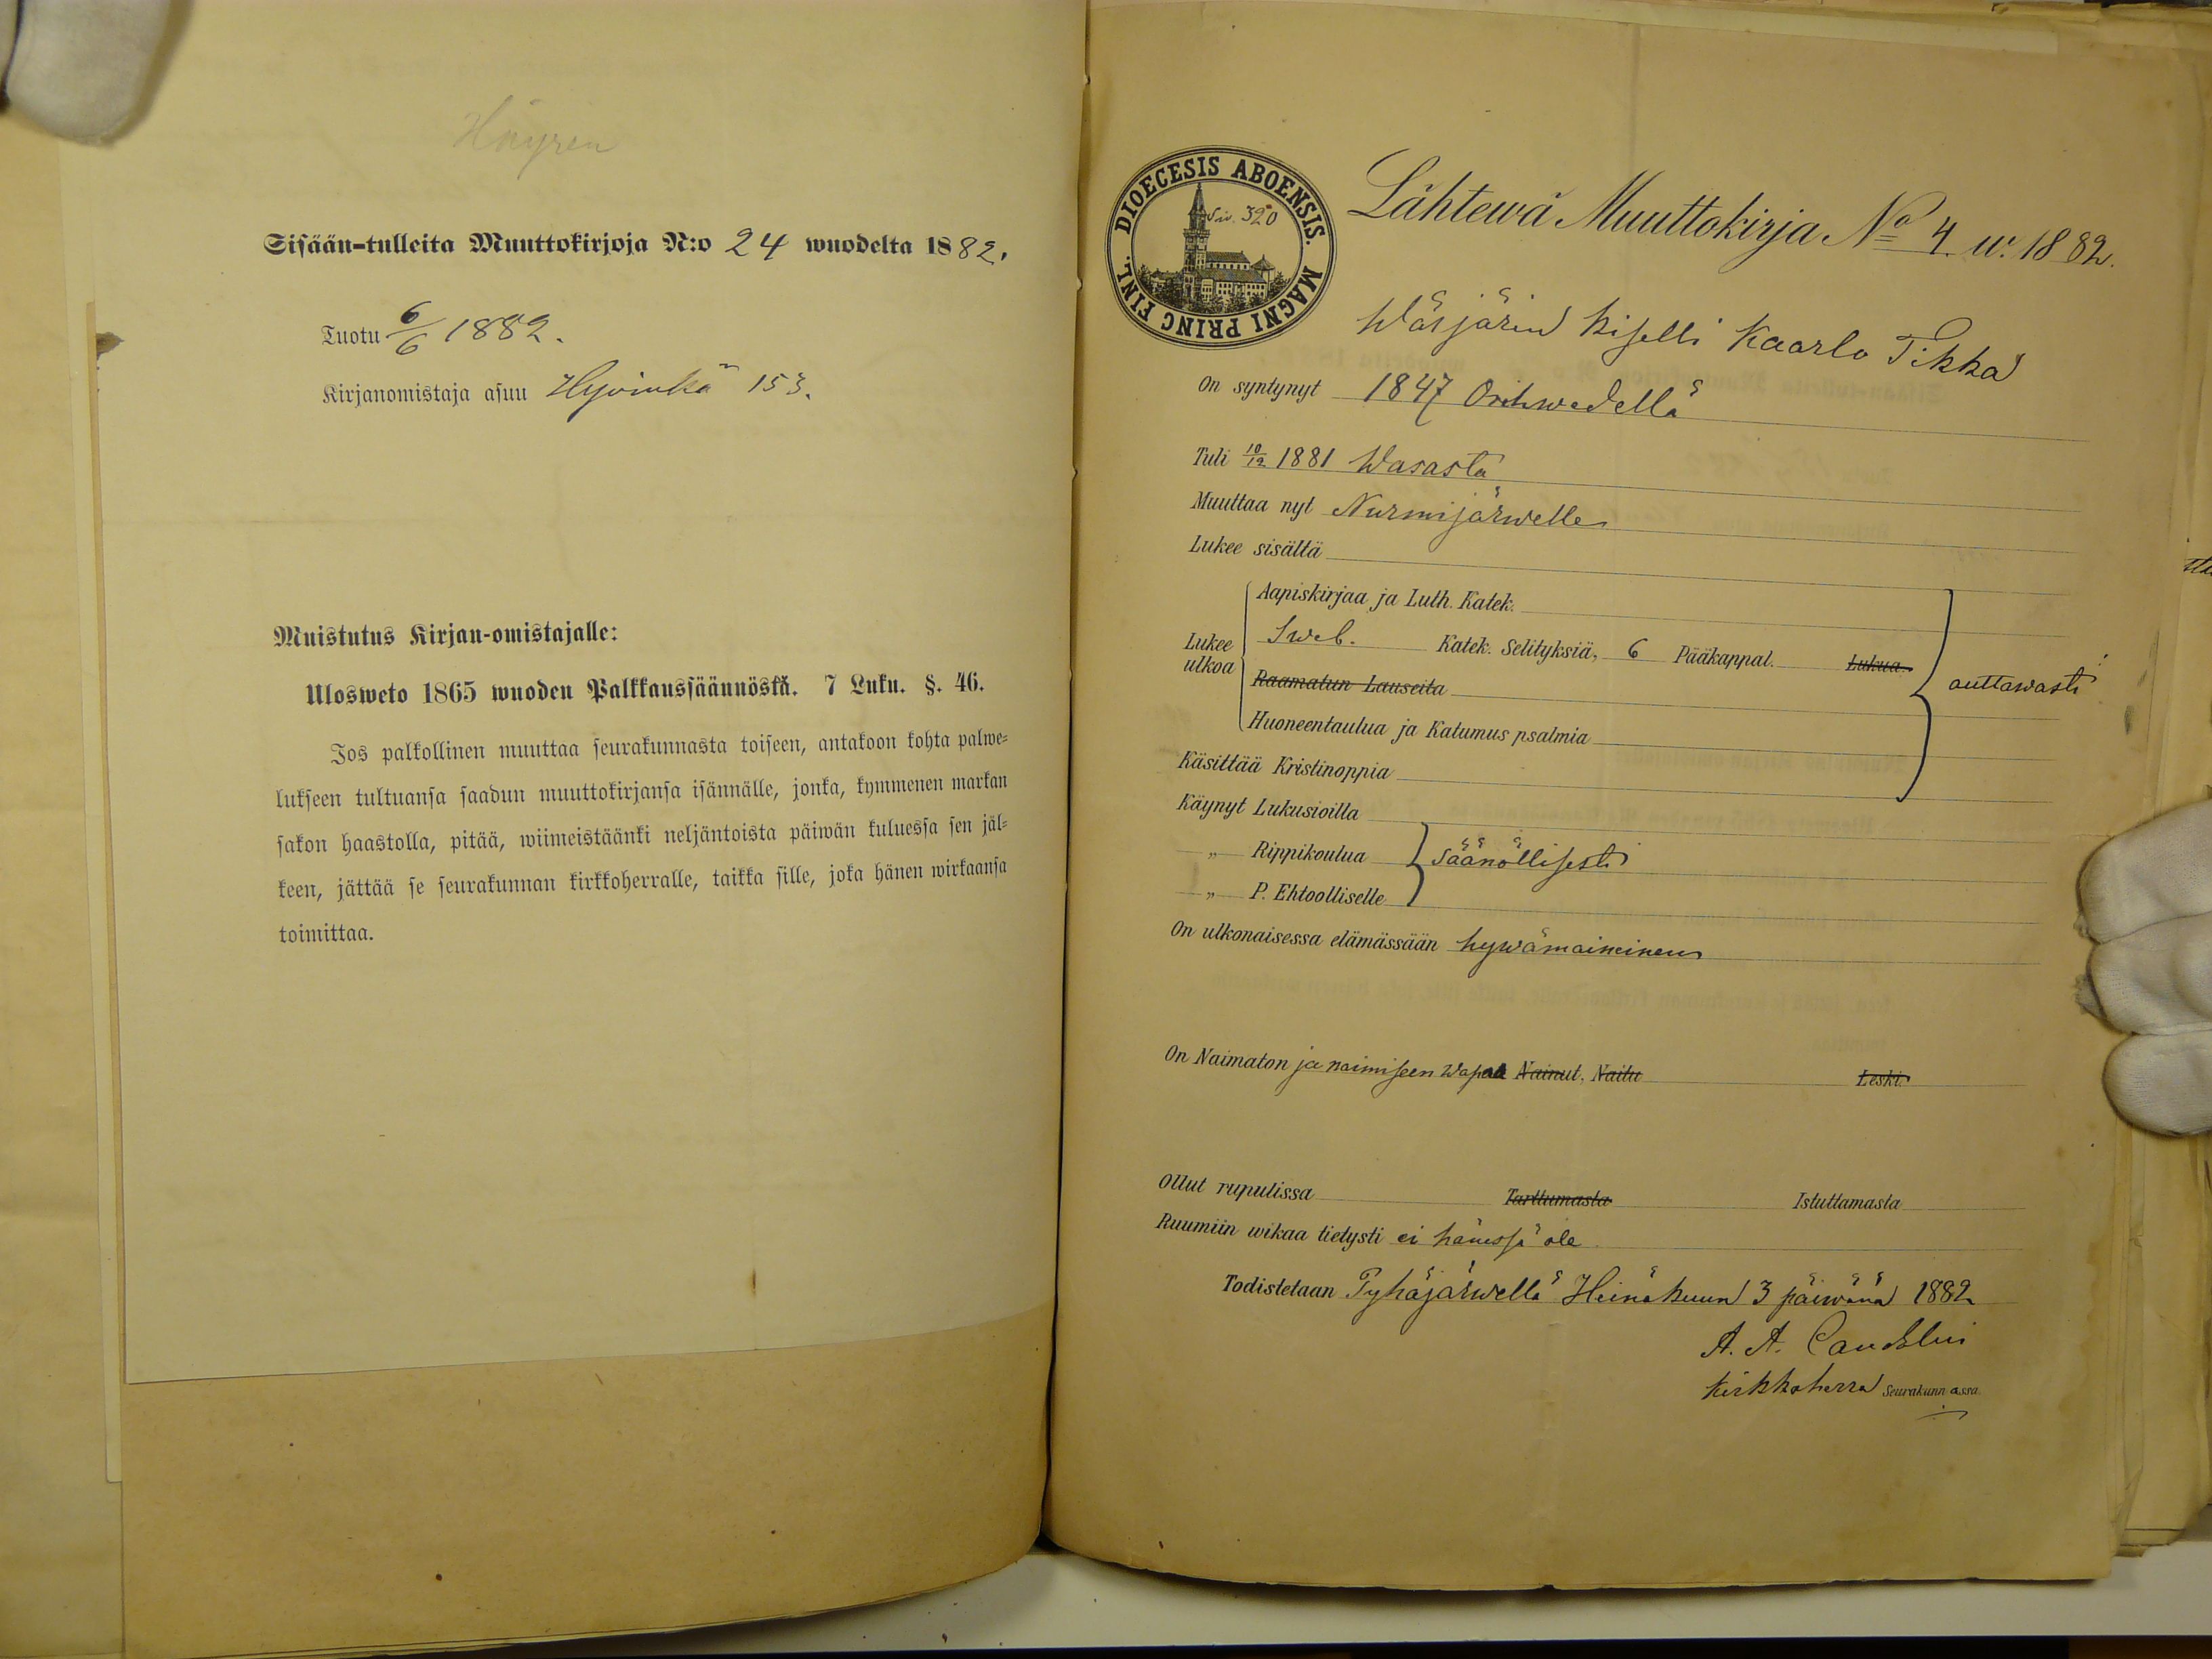 Höyren
Sisään-tulleita Muuttokirjoja N:o 24 wuodelta 1882.
Tuotu 6/6 1882.
Kirjanomistaja asuu Hyvinkä 153.
Muistutus Kirjan-omistajalle:
Ulosweto 1865 wuoden Palkkaussäännöstä. 7 Luku. §. 46.
Jos palkollinen muuttaa seurakunnasta toiseen, antakoon kohta palwe-
lukseen tultuansa saadun muuttokirjansa isännälle, jonka, kymmenen markan
sakon haastolla, pitää, wiimeistäänki neljäntoista päiwän kuluessa sen jäl-
keen, jättää se seurakunnan kirkkoherralle, taikka sille, joka hänen wirkaansa
toimittaa.
DIOECESIS ABOENSIS. MAGNI PRINC FINL.
Siv. 320
Lähtewä Muuttokirja No 4. w. 1882.
Wärjärin kiselli Kaarlo Tikka
On syntynyt 1847 Orihwedellä
Tuli 10/12 1881 Wasasta
Muuttaa nyt Nurmijärwelle
Lukee sisältä
Aapiskirjaa ja Luth. Katek.
Lukee ulkoa
Sweb. Katek. Selityksiä, 6 Pääkappal. Lukua.
Raamatun Lauseita
auttawasti
Huoneentaulua ja Katumus psalmia
Käsittää Kristinoppia
Käynyt Lukusioilla
„ Rippikoulua säänöllisesti
„ P. Ehtoolliselle
On ulkonaisessa elämässään hywämaineinen
On Naimaton ja naimiseen wapaa Nainut, Naitu Leski.
Ollut rupulissa Tarttumasta Istuttamasta
Ruumiin wikaa tietysti ei hänessä ole
Todistetaan Pyhäjärwellä Heinäkuun 3 päiwänä 1882
A. A.
Kirkkoherra Seurakunnassa.